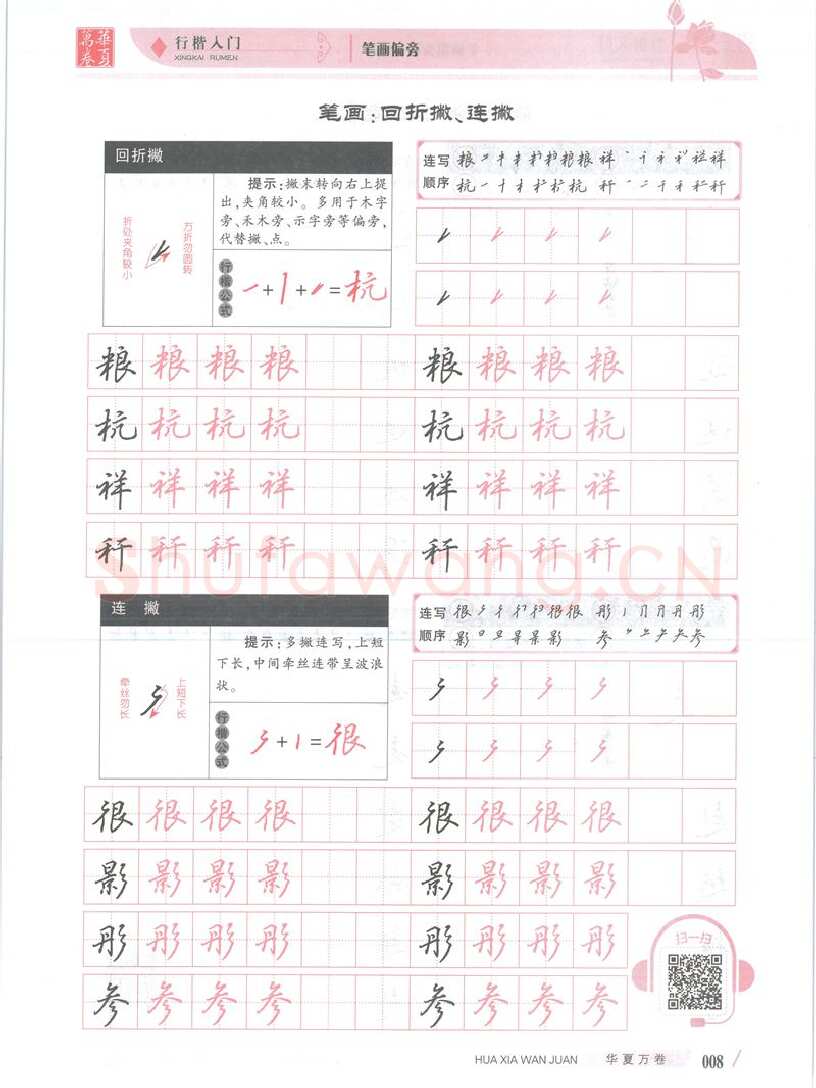 華夏
萬卷
行楷入门
XINGKAI RUMEN
笔画偏旁
笔画:回折撇、连撇
回折撇
折处夹角较小
方折勿圆转
提示:撇末转向右上提
出,夹角较小。多用于木字
旁、禾木旁、示字旁等偏旁,
代替撇、点。
行楷公式
一+丨+ =杭
连写
顺序
粮 粮 祥 祥
杭 一 十 杭 秆 秆
粮 粮 粮 粮 粮 粮 粮 粮
杭 杭 杭 杭 杭 杭 杭 杭
祥 祥 祥 祥 祥 祥 祥 祥
秆 秆 秆 秆 秆 秆 秆 秆
Shufawang.CN
连 撇
牵丝勿长
上短下长
提示:多撇连写,上短
下长,中间牵丝连带呈波浪
状。
行楷公式
+丨=很
连写
顺序
很 很 很 彤 丿 月 月 丹 彤
影 日 旦 景 影 参 参
很 很 很 很 很 很 很 很
影 影 影 影 影 影 影 影
彤 彤 彤 彤 彤 彤 彤 彤
参 参 参 参 参 参 参 参
扫一扫
HUA XIA WAN JUAN 华夏万卷 008 /